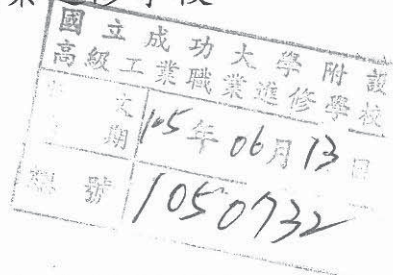 進修學校
國立成功大學附設
高級工業職業進修學校
文
期 105年06月13日
號 1050732